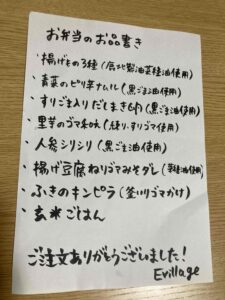 お弁当のお品書き
・揚げもの3種(圧搾製油菜種油使用)
・青菜のピリ辛ナムル(黒ごま油使用)
・すりごま入りだしまき卵(黒ごま油使用)
・里芋のゴマ和味(練り、すりゴマ使用)
・人参シリシリ(黒ごま油使用)
・揚げ豆腐ねりゴマみそダレ(菜種油使用)
・ふきのキンピラ(釜いりゴマかけ)
・玄米ごはん
ご注文ありがとうございました!
Evillage